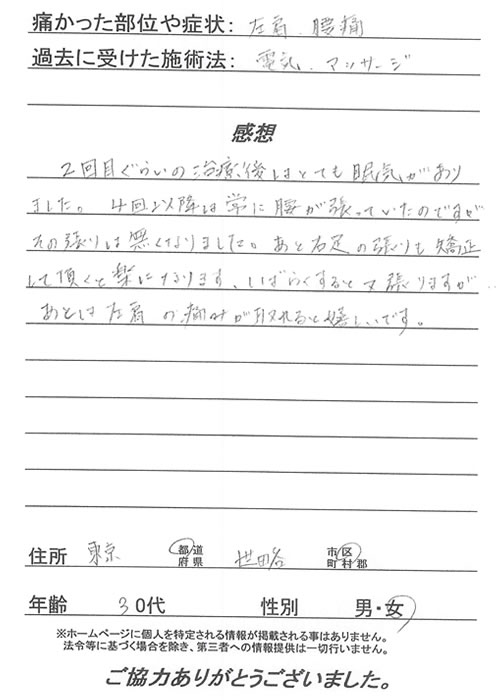 痛かった部位や症状: 左肩、腰痛
過去に受けた施術法: 電気、マッサージ
感想
2回目ぐらいの治療後はとても眠気があり
ました。4回以降は常に腰が張っていたのですが
その張りは無くなりました。あと右足の張りも矯正
して頂くと楽になります、しばらくすると又張りますが‥
あとは左肩の痛みが取れると嬉しいです。
住所 東京 都道府県 世田谷 市区町村郡
年齢 30代 性別 男・女
※ホームページに個人を特定される情報が掲載される事はありません。
法令等に基づく場合を除き、第三者への情報提供は一切行いません。
ご協力ありがとうございました。